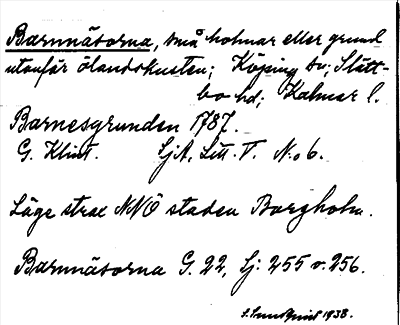 Barnnäsorna, små holmar eller grund
utanför ölandskusten; Köping sn; Slätt-
bo hd; Kalmar l.
Barnesgrunden 1787.
G. Klint. SjA, Litt. V. No 6.
Läge strax NNÖ staden Borgholm.
Barnnäsorna G. 22, Sj: 255 o. 256.
1938.